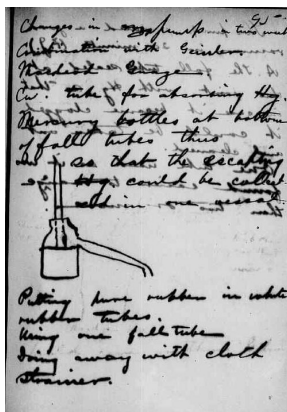 Changes in pump
Combination with Geissler.
McLeod Gauge
Cu. tube for absorbing Hg.
Mercury bottles at bottom
of fall tubes thus
so that the escaping
Hg could be collect
ed in one vessel
Putting pure rubber in white
rubber tubes.
Using one fall tube
Doing away with cloth
strainer.